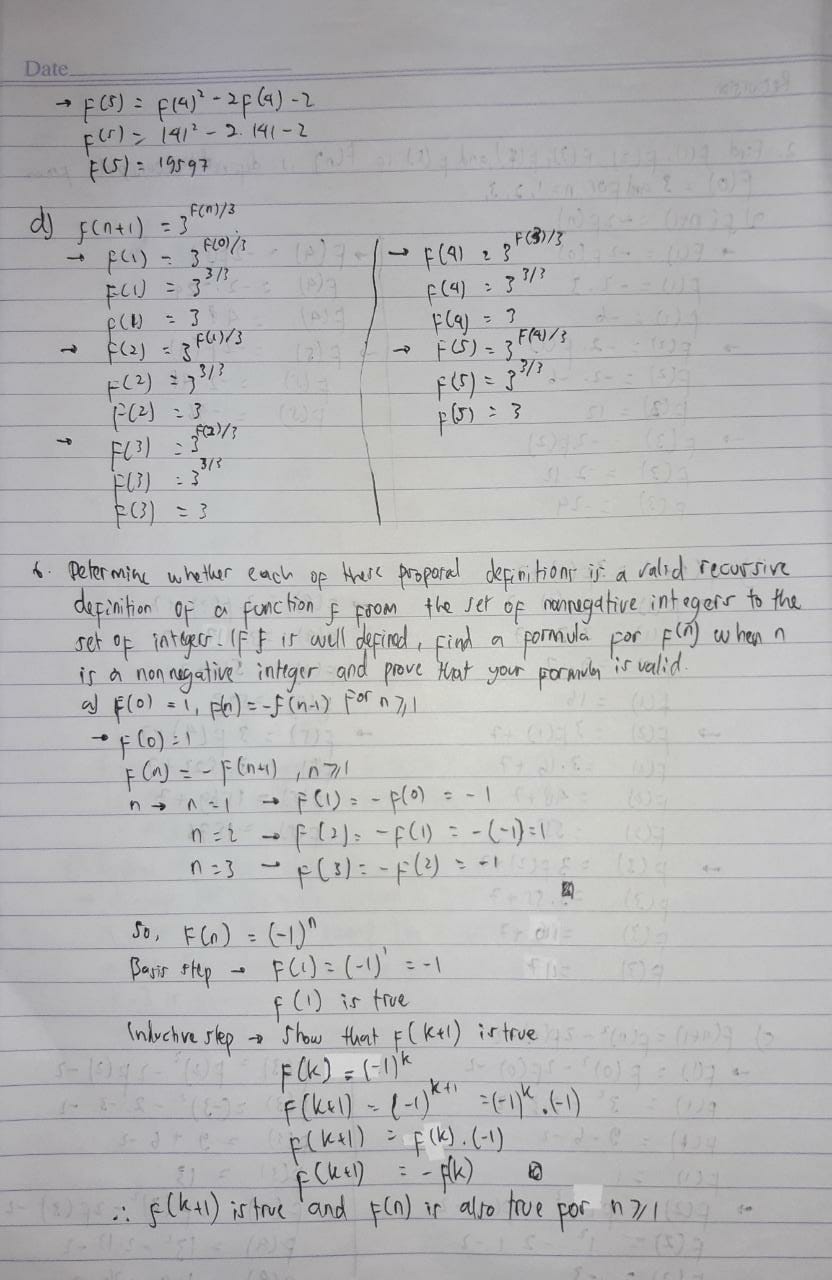 Date
→ f(5) = f(4)² - 2f(4) - 2
f(5) = 141² - 2. 141 - 2
f(5) = 19597
d) f(n+1) = 3^F(n)/3
→ f(1) = 3^F(0)/3
f(1) = 3^3/3
f(1) = 3
→ f(2) = 3^F(1)/3
f(2) = 3^3/3
f(2) = 3
→ f(3) = 3^F(2)/3
f(3) = 3^3/3
f(3) = 3
→ f(4) = 3^F(3)/3
f(4) = 3^3/3
f(4) = 3
→ f(5) = 3^F(4)/3
f(5) = 3^3/3
f(5) = 3
6. Determine whether each of these proposal definitions is a valid recursive
definition of a function f from the set of nonnegative integers to the
set of integers. If f is well defined, find a formula for f(n) when n
is a nonnegative integer and prove that your formula is valid.
a) f(0) = 1, f(n) = -f(n-1) for n ≥ 1
→ f(0) = 1
f(n) = - f(n+1) , n ≥ 1
n → n = 1 → f(1) = - f(0) = -1
n = 2 → f(2) = - f(1) = -(-1) = 1
n = 3 → f(3) = - f(2) = -1
So, f(n) = (-1)ⁿ
Basis step → f(1) = (-1)¹ = -1
f(1) is true
Inductive step → Show that f(k+1) is true
f(k) = (-1)^k
f(k+1) = (-1)^k+1 = (-1)^k . (-1)
f(k+1) = f(k) . (-1)
f(k+1) = - f(k)
∴ f(k+1) is true and f(n) is also true for n ≥ 1